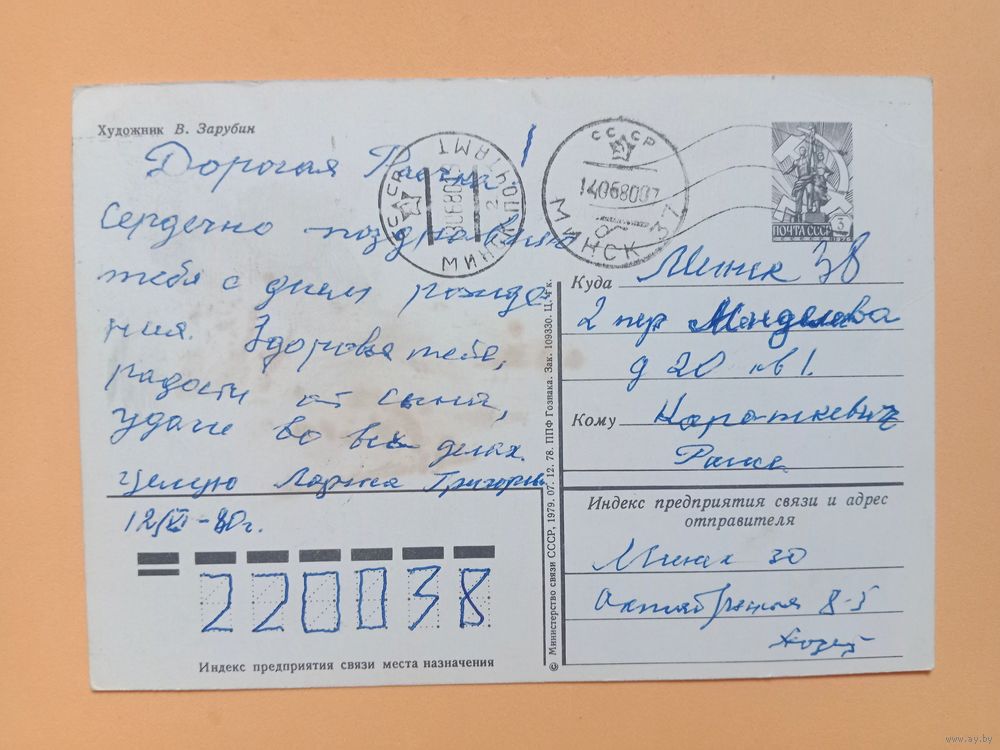 Художник В. Зарубин
Дорогая
Сердечно поздравляю
тебя с днем рожде
ния. Здоровья тебе,
радости от сына,
удачи во всех делах.
Целую Лариса
12/VI-80г.
220038
Индекс предприятия связи места назначения
© Министерство связи СССР, 1979. 07. 12. 78. ППФ Гознака. Зак. 109330. Ц. 4 к.
БССР
МИНСК ПОЧТАМТ
СССР
14068007
МИНСК 37
ПОЧТА СССР
3
Куда Минск 38
2 пер Менделеева
д 20 кв 1.
Кому Короткевич
Раисе
Индекс предприятия связи и адрес
отправителя
Минск 30
Октябрьская 8-5
www.ay.by